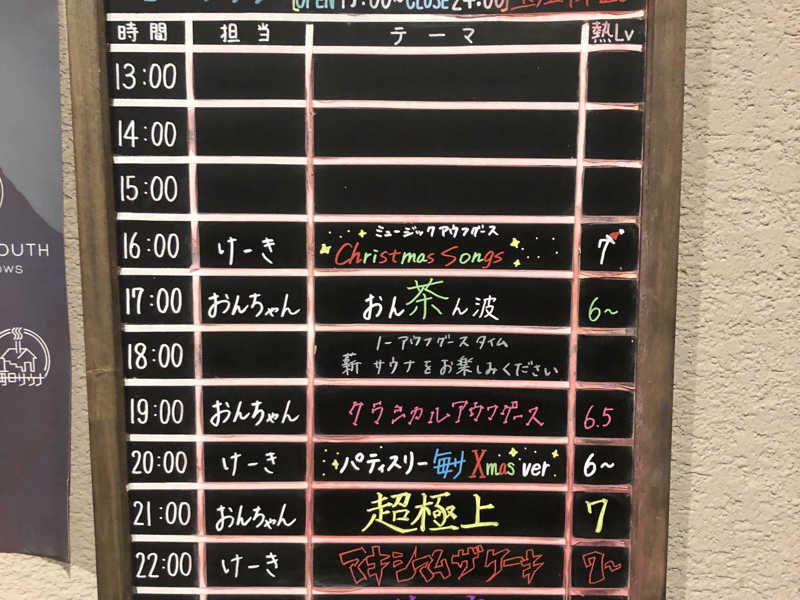 [OPEN 13:00~CLOSE 24:00]
時間 担当 テーマ 熱Lv
13:00
14:00
15:00
16:00 けーき ミュージックアウフグース
Christmas Songs 7
17:00 おんちゃん おん茶ん波 6~
18:00 ノーアウフグースタイム
薪サウナをお楽しみください
19:00 おんちゃん クラシカルアウフグース 6.5
20:00 けーき パティスリー毎サ Xmas ver. 6~
21:00 おんちゃん 超極上 7
22:00 けーき マキシマムザケーキ 7~
OUTH
OWS
毎日サウナ